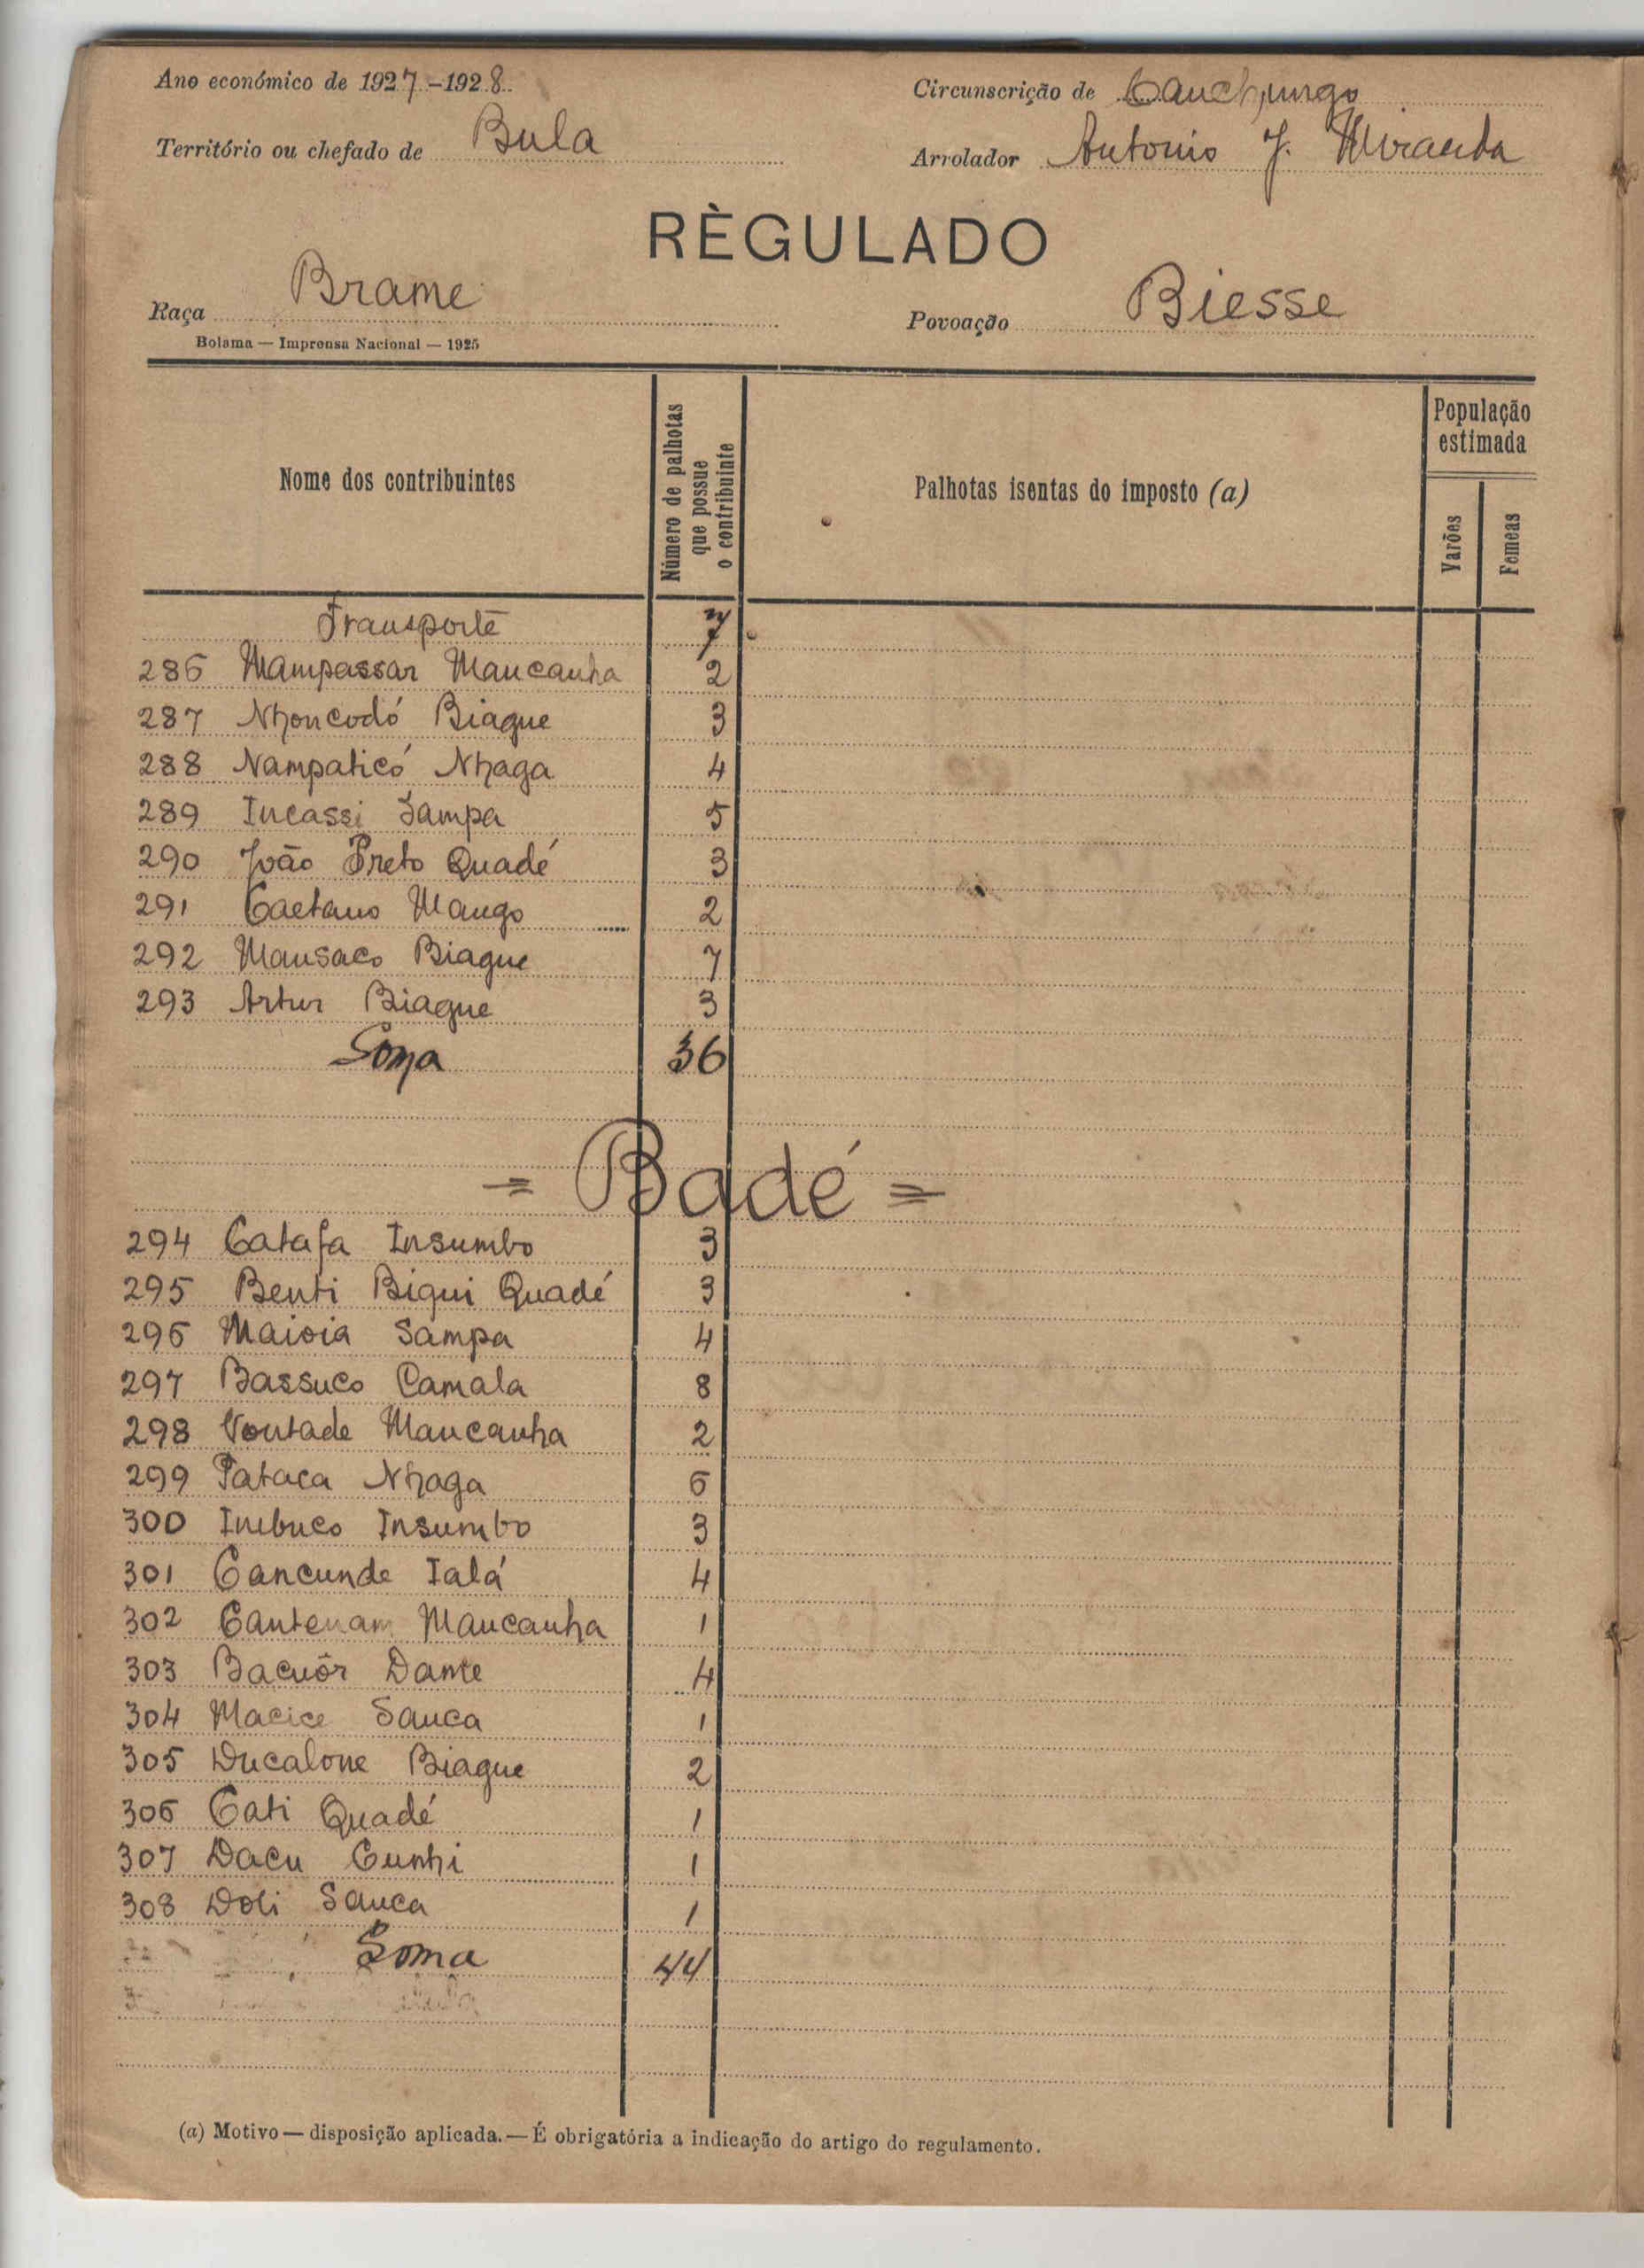 Ano económico de 1927-1928
Circunscrição de Canchungo
Território ou chefado de Bula
Arrolador Antonio J. Miranda
RÈGULADO
Raça Brame
Povoação Biesse
Bolama — Imprensa Nacional — 1925
Nome dos contribuintes
Número de palhotas que possue o contribuinte
Palhotas isentas do imposto (a)
População estimada
Varões
Femeas
Transporte 7
286 Mampassar Mancanha 2
287 Nhoncodó Biague 3
288 Nampaticó Nhaga 4
289 Incassi Sampa 5
290 João Preto Quadé 3
291 Caetano Mango 2
292 Mansaco Biague 7
293 Artur Biague 3
Soma 36
= Badé =
294 Catafa Insumbo 3
295 Benti Biqui Quadé 3
296 Maioia Sampa 4
297 Bassuco Camala 8
298 Vontade Mancanha 2
299 Pataca Nhaga 6
300 Inebuco Insumbo 3
301 Cancunde Ialá 4
302 Cantenam Mancanha 1
303 Bacuôr Dame 4
304 Macice Sanca 1
305 Ducalone Biague 2
306 Cati Quadé 1
307 Dacu Cunhi 1
308 Doli Sanca 1
Soma 44
(a) Motivo — disposição aplicada. — É obrigatória a indicação do artigo do regulamento.